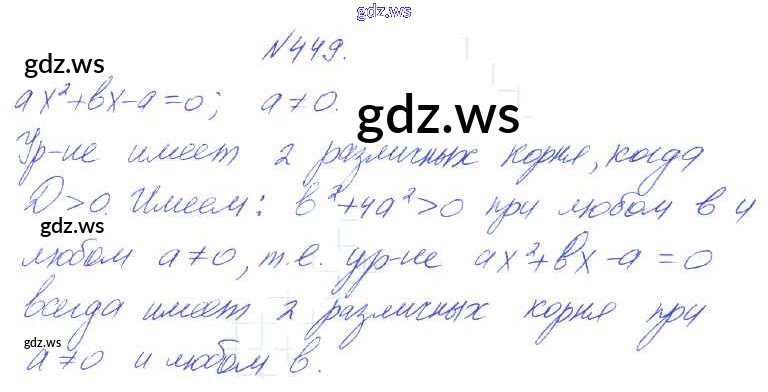 gdz.ws
№449.
gdz.ws
ax²+bx-a=0; a≠0.
gdz.ws
Ур-ие имеет 2 различных корня, когда
D>0. Имеем: b²+4a²>0 при любом b и
gdz.ws
любом a≠0, т.е. ур-ие ax²+bx-a=0
всегда имеет 2 различных корня при
gdz.ws
a≠0 и любом b.